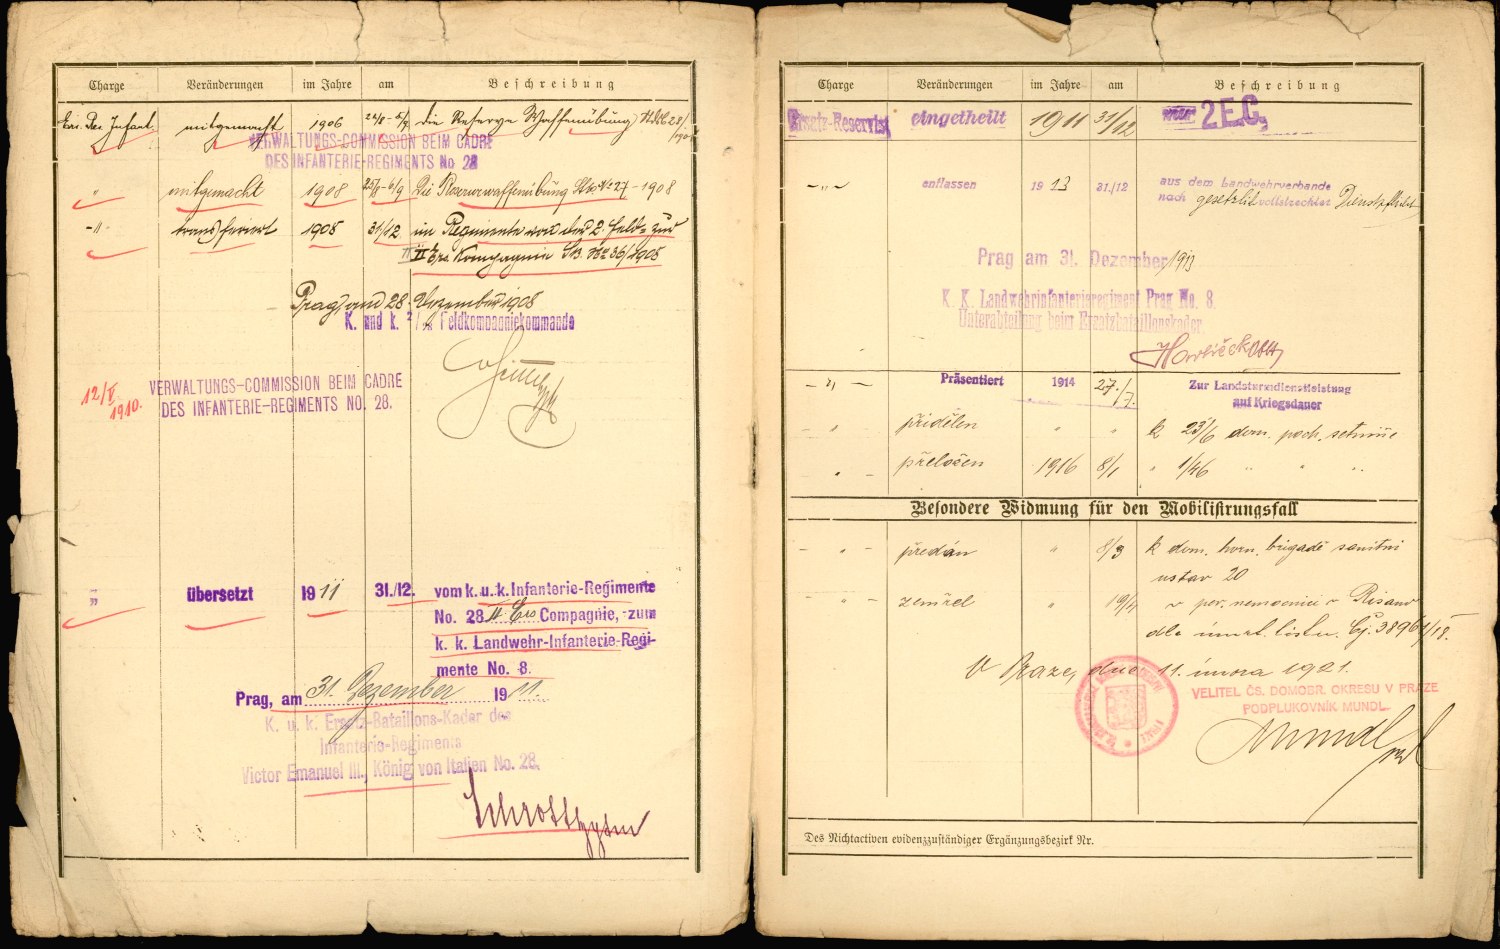 Charge Veränderungen im Jahre am Beschreibung
Ers. Res. Infant. mitgemacht 1906 die Reserve Waffenübung
VERWALTUNGS-COMMISSION BEIM CADRE
DES INFANTERIE-REGIMENTS No 28
" mitgemacht 1908 die Reservewaffenübung Stb. No 27-1908
-"- transferiert 1908 31/12 im Regimente von der 2. Feld- zur
II Ers. Kompagnie Stb. No 36/1908
Prag, am 28. Dezember 1908
K. und k. 2/28 Feldkompagniekommando
12/V
1910.
VERWALTUNGS-COMMISSION BEIM CADRE
DES INFANTERIE-REGIMENTS NO. 28.
" übersetzt 1911 31./12. vom k. u. k. Infanterie-Regimente
No. 28 Ers Compagnie, zum
k. k. Landwehr-Infanterie-Regi-
mente No. 8.
Prag, am 31. Dezember 1911.
K. u. k. Ersatz-Bataillons-Kader des
Infanterie-Regiments
Victor Emanuel III., König von Italien No. 28.
Charge Veränderungen im Jahre am Beschreibung
Ersatz-Reservist eingetheilt 1911 31/12 zur 2 E.C.
-"- entlassen 1913 31./12 aus dem Landwehrverbande
nach gesetzlich vollstreckter Dienstpflicht
Prag am 31. Dezember 1913
K. K. Landwehrinfanterieregiment Prag No. 8.
Unterabteilung beim Ersatzbataillonskader
-"- Präsentiert 1914 27./7. Zur Landsturmdienstleistung
auf Kriegsdauer
- " - přidělen " " k 23/6 dom. poch. setnině
- " - přeložen 1916 8/1 " 1/46 " " "
Besondere Widmung für den Mobilisirungsfall
- " - předán " 8/3 k dom. horn. brigadě sanitní
ústav 20
- " - zemřel " 19/4 v pev. nemocnici v Risano
dle úmrt. listu. Čj. 3896
V Praze, dne 11. února 1921.
VELITEL ČS. DOMOBR. OKRESU V PRAZE
PODPLUKOVNÍK MUNDL.
Mundl
Des Nichtactiven evidenzzuständiger Ergänzungsbezirk Nr.